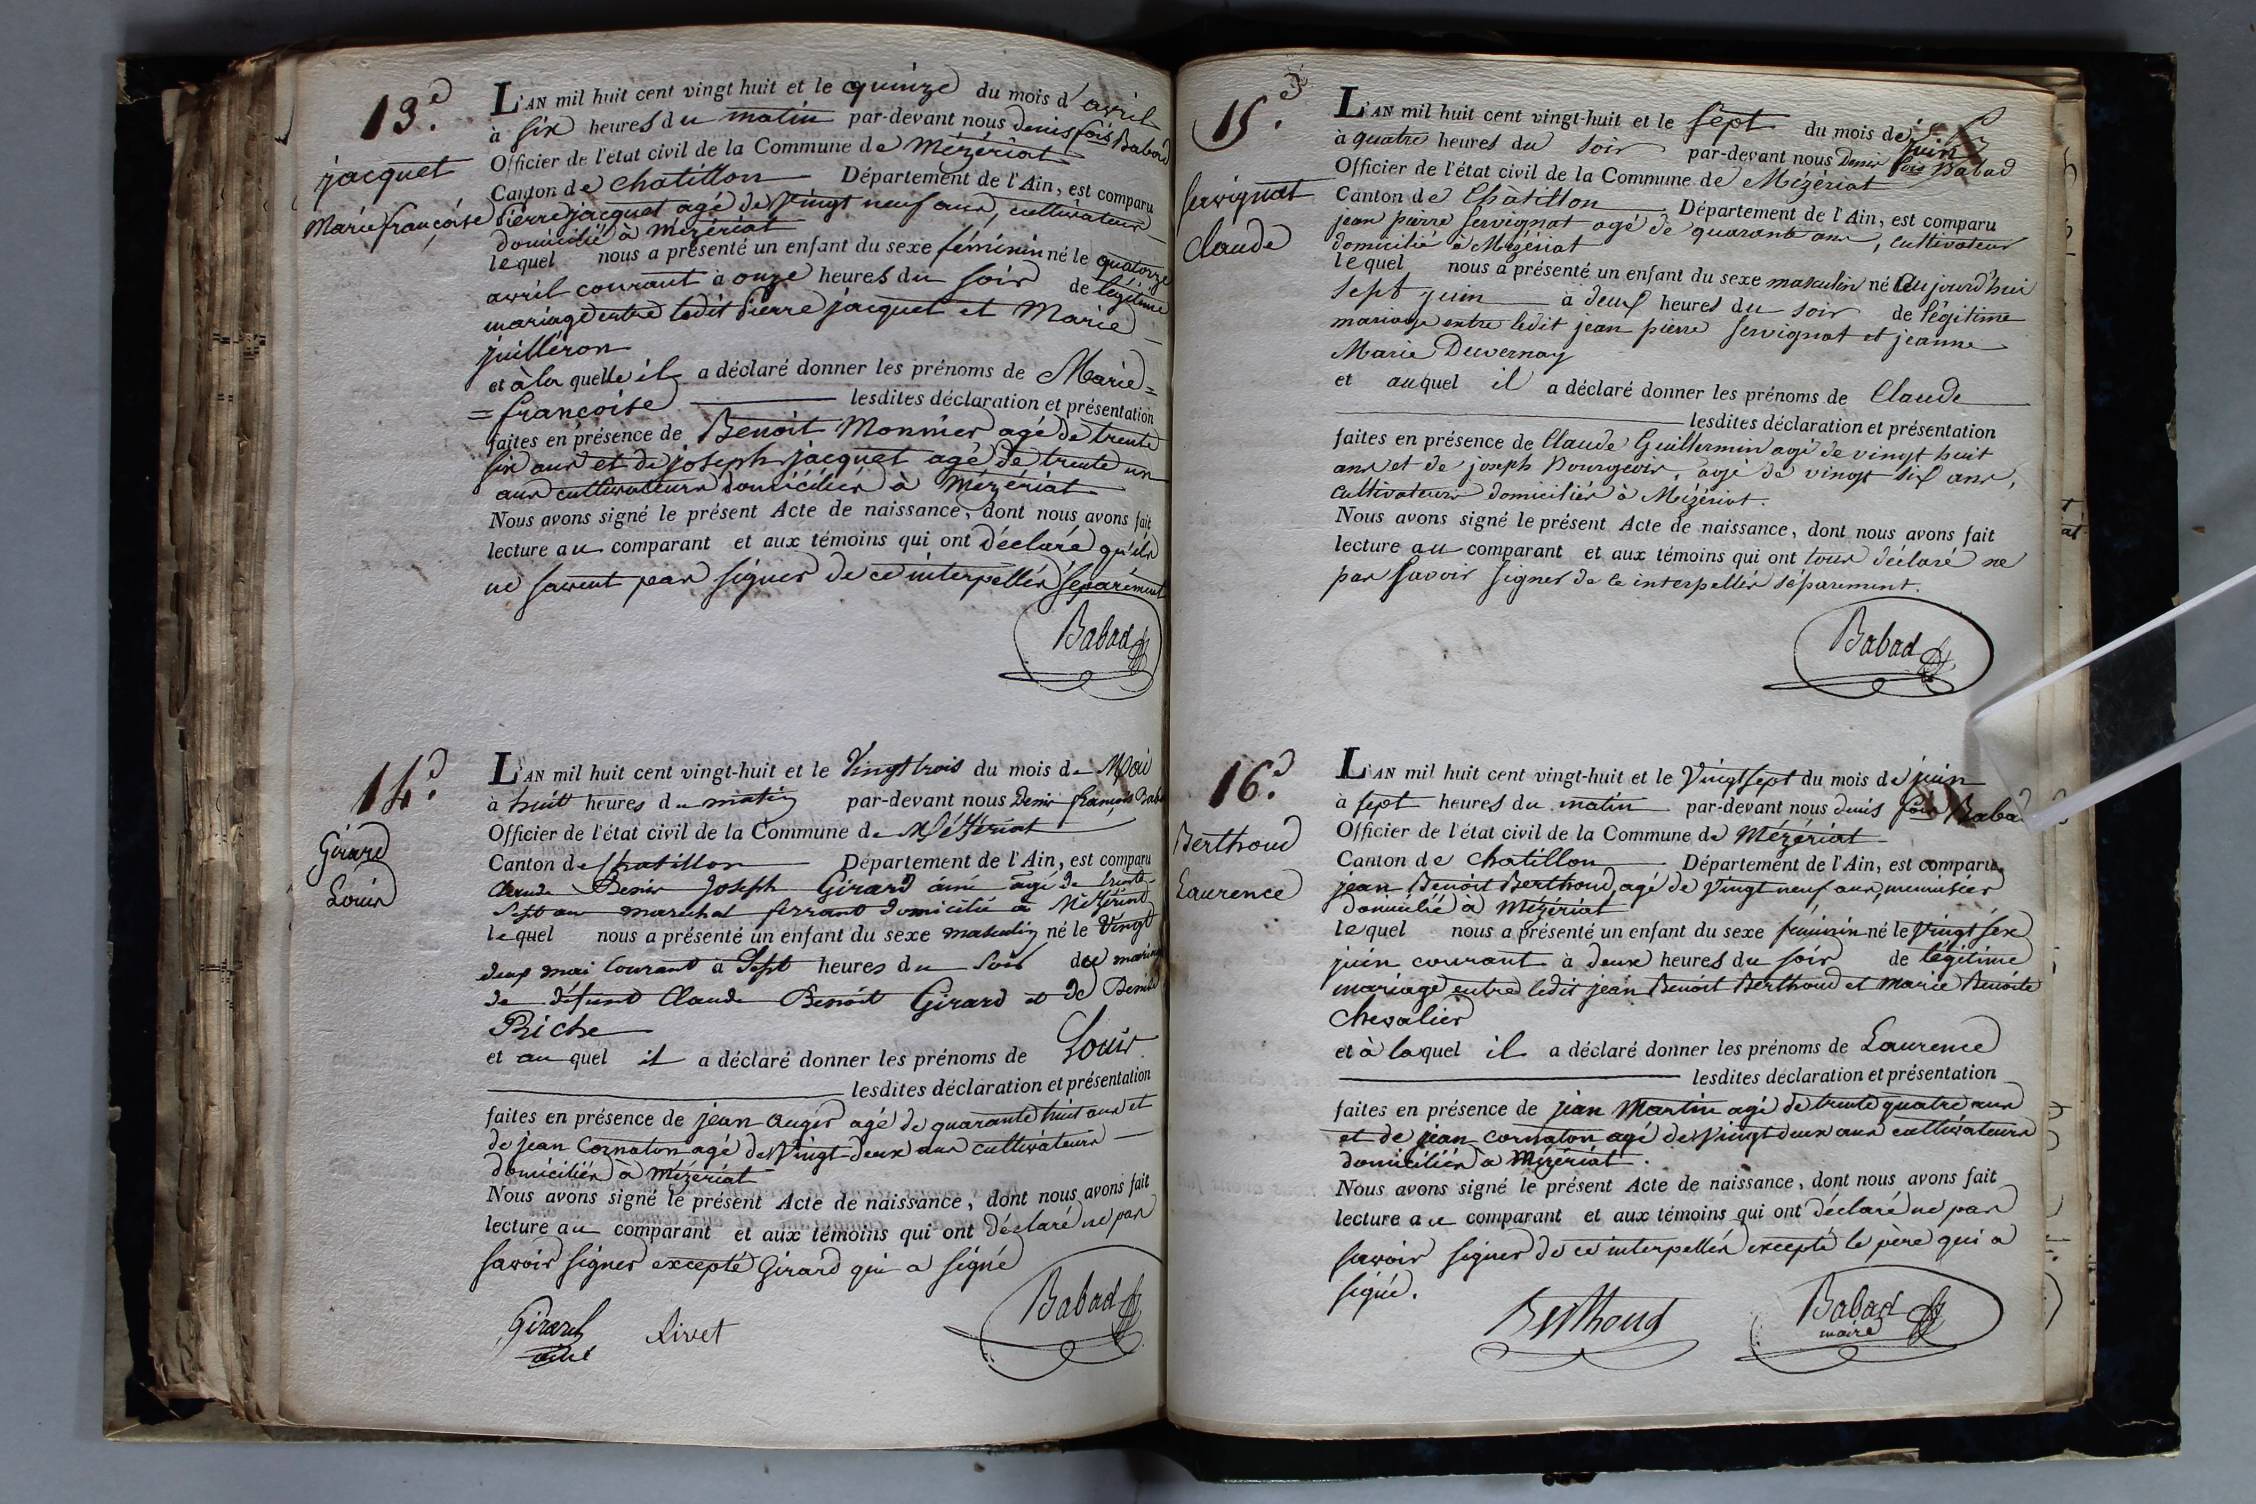 13.e
jacquet
Marie françoise
L'AN mil huit cent vingt huit et le quinze du mois d'avril
à six heures du matin par-devant nous denis fois Babad
Officier de l'état civil de la Commune de Mézériat
Canton de chatillon Département de l'Ain, est comparu
Pierre jacquet agé de Vingt neuf ans, cultivateur
domicilié à Mézériat
lequel nous a présenté un enfant du sexe féminin né le quatorze
avril courant à onze heures du soir de légitime
mariage entre ledit Pierre jacquet et Marie
juilléron
et à la quelle il a déclaré donner les prénoms de Marie=
=françoise lesdites déclaration et présentation
faites en présence de Benoit Monnier agé de trente
six ans et de joseph jacquet agé de trente un
ans cultivateurs domiciliés à Mézériat
Nous avons signé le présent Acte de naissance, dont nous avons fait
lecture au comparant et aux témoins qui ont déclaré qu'ils
ne savent pas signer de ce interpellés séparément
Babad
14.e
Girard
Louis
L'AN mil huit cent vingt-huit et le Vingt trois du mois de Mai
à huit heures du matin par-devant nous Denis françois Babad
Officier de l'état civil de la Commune de Mézériat
Canton de Chatillon Département de l'Ain, est comparu
Claude Denis Joseph Girard ainé agé de trente
sept ans maréchal ferrant domicilié à Mézériat
lequel nous a présenté un enfant du sexe masculin né le Vingt
deux mai courant à Sept heures du soir du mariage
de défunt Claude Benoit Girard et de Benoite
Briche
et au quel il a déclaré donner les prénoms de Louis
lesdites déclaration et présentation
faites en présence de jean auger agé de quarante huit ans et
de jean Cornaton agé de Vingt deux ans cultivateurs
domiciliés à Mézériat
Nous avons signé le présent Acte de naissance, dont nous avons fait
lecture au comparant et aux témoins qui ont déclaré ne pas
savoir signer excepté Girard qui a signé
Girard
ainé
Rivet
Babad
15.e
Servignat
Claude
L'AN mil huit cent vingt-huit et le sept du mois de juin
à quatre heures du soir par-devant nous Denis fois Babad
Officier de l'état civil de la Commune de Mézériat
Canton de Châtillon Département de l'Ain, est comparu
jean pierre Servignat agé de quarante ans, cultivateur
domicilié à Mézériat
lequel nous a présenté un enfant du sexe masculin né aujourd'hui
sept juin à deux heures du soir de légitime
mariage entre ledit jean pierre Servignat et jeanne
Marie Duvernay
et auquel il a déclaré donner les prénoms de Claude
lesdites déclaration et présentation
faites en présence de Claude Guillermin agé de vingt huit
ans et de joseph Bourgeois, agé de vingt six ans,
cultivateurs domiciliés à Mézériat.
Nous avons signé le présent Acte de naissance, dont nous avons fait
lecture au comparant et aux témoins qui ont tous déclaré ne
pas savoir signer de ce interpellés séparement.
Babad
16.e
Berthoud
Laurence
L'AN mil huit cent vingt-huit et le Vingt sept du mois de juin
à sept heures du matin par-devant nous denis fois Babad
Officier de l'état civil de la Commune de Mézériat
Canton de chatillon Département de l'Ain, est comparu
jean Benoit Berthoud, agé de Vingt neuf ans, menuisier
domicilié à Mézériat
lequel nous a présenté un enfant du sexe féminin né le Vingt six
juin courant à deux heures du soir de légitime
mariage entre ledit jean Benoit Berthoud et Marie Benoite
Chevalier
et à laquel il a déclaré donner les prénoms de Laurence
lesdites déclaration et présentation
faites en présence de jean Martin agé de trente quatre ans
et de jean cornaton agé de Vingt deux ans cultivateurs
domiciliés à Mézériat.
Nous avons signé le présent Acte de naissance, dont nous avons fait
lecture au comparant et aux témoins qui ont déclaré ne pas
savoir signer de ce interpellés excepté le père qui a
signé.
Berthoud
Babad
maire